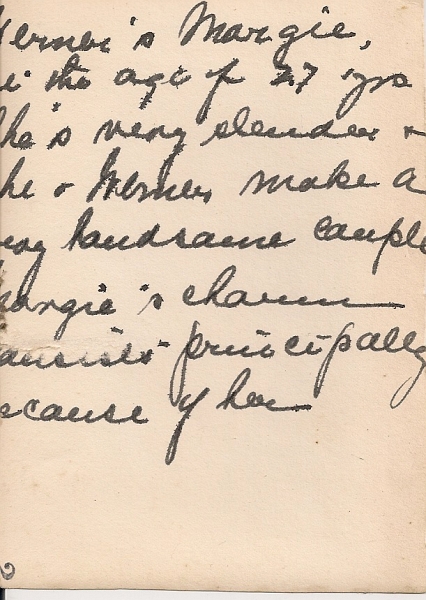 Werner's Margie,
at the age of 27 yrs
She's very slender +
she + Werner make a
very handsome couple
Margie's charm
consists principally
because of her